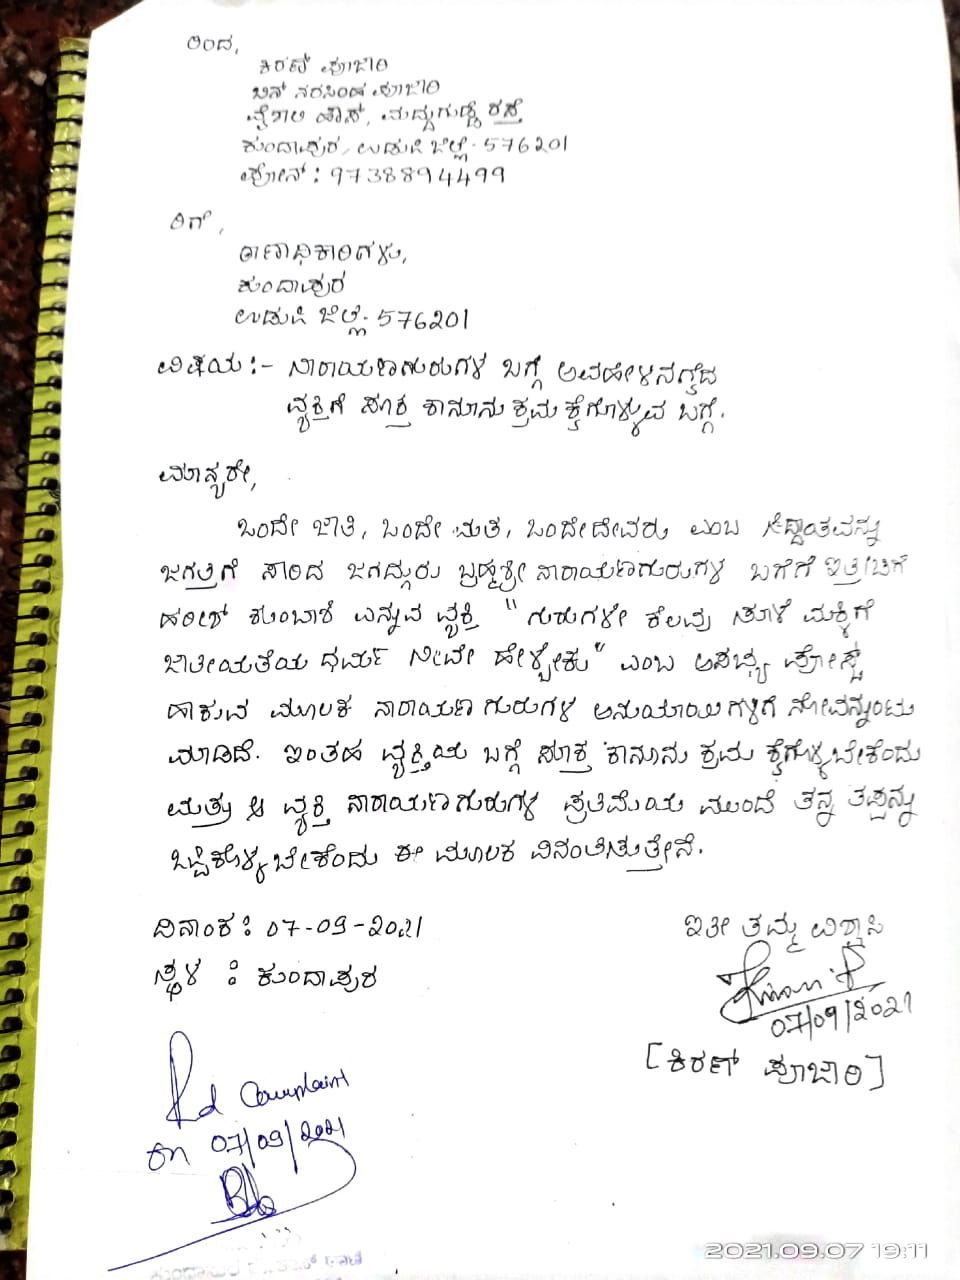 ರಿಂದ,
ಕಿರಣ್ ಪೂಜಾರಿ
ಬಿನ್ ನರಸಿಂಹ ಪೂಜಾರಿ
ವೈಶಾಲಿ ಹೌಸ್, ಮದ್ದುಗುಡ್ಡೆ ರಸ್ತೆ
ಕುಂದಾಪುರ, ಉಡುಪಿ ಜಿಲ್ಲೆ-576201
ಫೋನ್ : 9738894499
ರಿಗೆ,
ಠಾಣಾಧಿಕಾರಿಗಳು,
ಕುಂದಾಪುರ
ಉಡುಪಿ ಜಿಲ್ಲೆ-576201
ವಿಷಯ :- ನಾರಾಯಣಗುರುಗಳ ಬಗ್ಗೆ ಅವಹೇಳನಗೈದ
ವ್ಯಕ್ತಿಗೆ ಸೂಕ್ತ ಕಾನೂನು ಕ್ರಮ ಕೈಗೊಳ್ಳುವ ಬಗ್ಗೆ.
ಮಾನ್ಯರೇ,
ಒಂದೇ ಜಾತಿ, ಒಂದೇ ಮತ, ಒಂದೇದೇವರು ಎಂಬ ಸಿದ್ಧಾಂತವನ್ನು
ಜಗತ್ತಿಗೆ ಸಾರಿದ ಜಗದ್ಗುರು ಬ್ರಹ್ಮಶ್ರೀ ನಾರಾಯಣಗುರುಗಳ ಬಗೆಗೆ ಇತ್ತೀಚಿಗೆ
ಹರೀಶ್ ಕುಂಬಾರಿ ಎನ್ನುವ ವ್ಯಕ್ತಿ "ಗುರುಗಳೇ ಕೆಲವು ಸೂಳೆ ಮಕ್ಕಳಿಗೆ
ಜಾತೀಯತೆಯ ಧರ್ಮ ನೀವೇ ಹೇಳ್ಬೇಕು" ಎಂಬ ಅಸಭ್ಯ ಪೋಸ್ಟ್
ಹಾಕುವ ಮೂಲಕ ನಾರಾಯಣ ಗುರುಗಳ ಅನುಯಾಯಿಗಳಿಗೆ ನೋವನ್ನುಂಟು
ಮಾಡಿದೆ. ಇಂತಹ ವ್ಯಕ್ತಿಯ ಬಗ್ಗೆ ಸೂಕ್ತ ಕಾನೂನು ಕ್ರಮ ಕೈಗೊಳ್ಳಬೇಕೆಂದು
ಮತ್ತು ಆ ವ್ಯಕ್ತಿ ನಾರಾಯಣಗುರುಗಳ ಪ್ರತಿಮೆಯ ಮುಂದೆ ತನ್ನ ತಪ್ಪನ್ನು
ಒಪ್ಪಿಕೊಳ್ಳಬೇಕೆಂದು ಈ ಮೂಲಕ ವಿನಂತಿಸುತ್ತೇನೆ.
ದಿನಾಂಕ : 07-09-2021
ಸ್ಥಳ : ಕುಂದಾಪುರ
ಇತೀ ತಮ್ಮ ವಿಶ್ವಾಸಿ
Kiran P
07/09/2021
[ಕಿರಣ್ ಪೂಜಾರಿ]
Rd Complaint
on 07/09/2021
2021.09.07 19:11